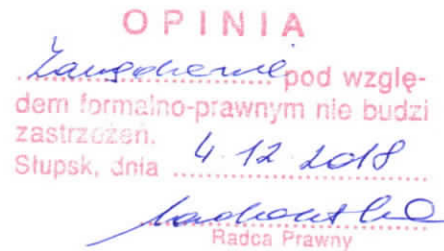 OPINIA
Zarządzenie pod wzglę-
dem formalno-prawnym nie budzi
zastrzeżeń.
Słupsk, dnia 4.12.2018
Radca Prawny